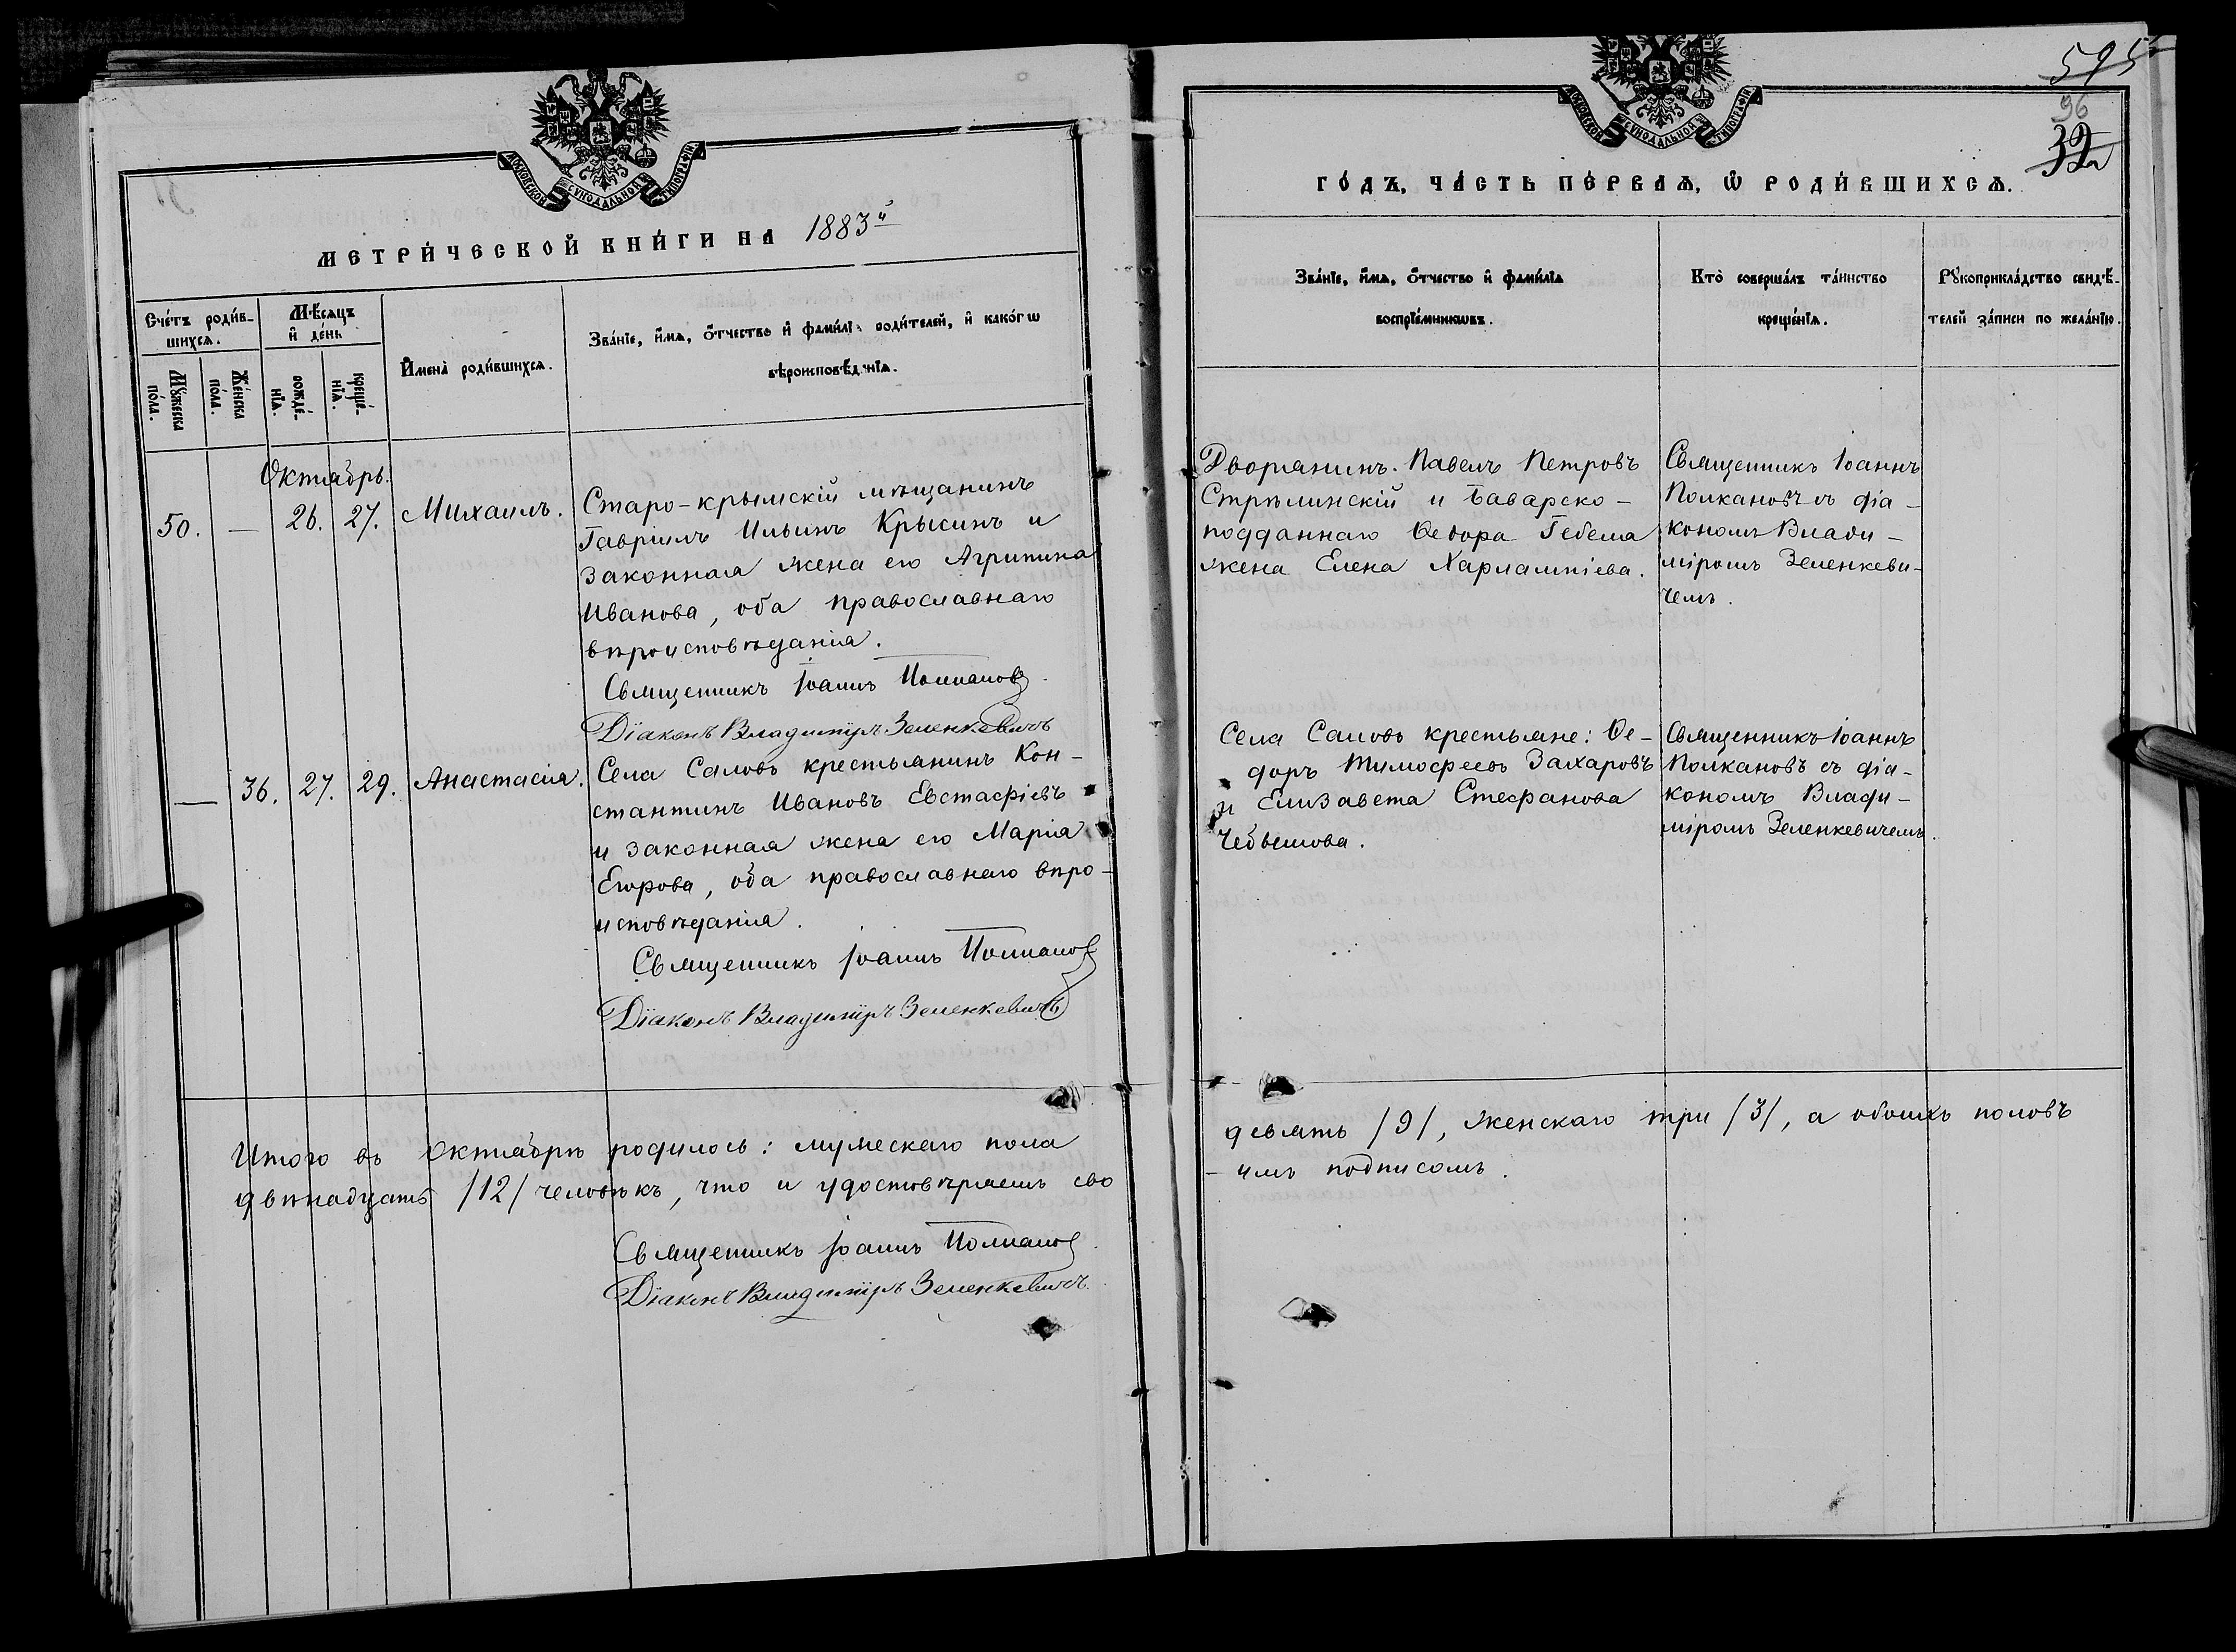 МОСКОВСКОЙ СѴНОДАЛЬНОЙ ТИПОГРАФІИ
МЕТРИ́ЧЕСКОЙ КНИ́ГИ НА 1883й
Сче́тъ роди́в-
шихся.
Мѣ́сяцъ
и҆ де́нь
И҆мена̀ роди́вшихся.
Зва́нїе, и҆́мя, ѻ҆́тчество и҆ фамн́лїя роди́телей, и҆ како́гѡ
вѣроисповѣ́данїя.
Мꙋ́жеска
по́ла.
Же́нска
по́ла.
рожде́-
нїя.
креще́-
нїя.
Октябрь.
50.
—
26.
27.
Михаилъ.
Старо-крымскій мѣщанинъ
Гавріилъ Ильинъ Крысинъ и
законная жена его Агрипина
Иванова, оба православнаго
вѣроисповѣданія.
Священникъ Іоаннъ Полкановъ
Діаконъ Владиміръ Зеленкевичъ
—
36.
27.
29.
Анастасія.
Села Саловъ крестьянинъ Кон-
стантинъ Ивановъ Евстафіевъ
и законная жена его Марія
Егорова, оба православнаго вѣро-
исповѣданія.
Священникъ Іоаннъ Полкановъ
Діаконъ Владиміръ Зеленкевичъ
Итого въ Октябрѣ родилось: мужескаго пола
двѣнадцать /12/ человѣкъ, что и удостовѣряемъ сво
Священникъ Іоаннъ Полкановъ
Діаконъ Владиміръ Зеленкевичъ.
595
96
32
МОСКОВСКОЙ СѴНОДАЛЬНОЙ ТИПОГРАФІИ
ГО́ДЪ, ЧА́СТЬ ПЕ́РВАЯ, Ѽ РОДИ́ВШИХСЯ.
Зва́нїе, и҆́мя, ѻ҆́тчество и҆ фами́лїя
воспрїе́мникѡвъ.
Кто̀ соверша́лъ та́инство
креще́нїя.
Рꙋкоприкла́дство свидѣ́-
телей за́писи по жела́нїю.
Дворянинъ Павелъ Петровъ
Стрѣлинскій и Баварско-
подданнаго Ѳедора Гебеля
жена Елена Харлампіева.
Священникъ Іоаннъ
Полкановъ съ діа-
кономъ Влади-
міромъ Зеленкеви-
чемъ.
Села Саловъ крестьяне: Ѳе-
доръ Тимофеевъ Захаровъ
и Елизавета Стефанова
Чебышова.
Священникъ Іоаннъ
Полкановъ съ діа-
кономъ Влади-
міромъ Зеленкевичемъ.
девять /9/, женскаго три /3/, а обоихъ половъ
-имъ подписомъ.